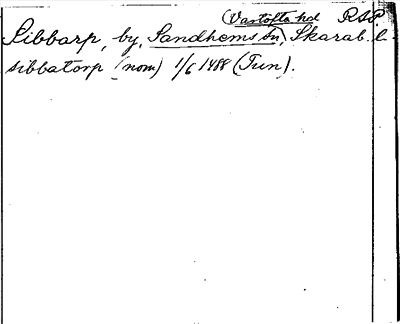 (Vartofta hd RSP.
Sibbarp, by, Sandhems sn), Skarab. l.
sibbatorp (nom) 1/6 1488 (Tun).